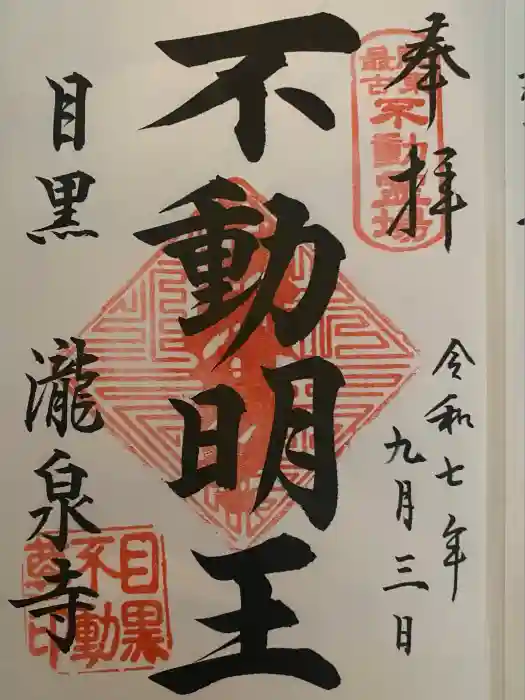 奉拝
関東
最古
不動霊場
令和七年
九月三日
不動明王
目黒 瀧泉寺
目黒
不動